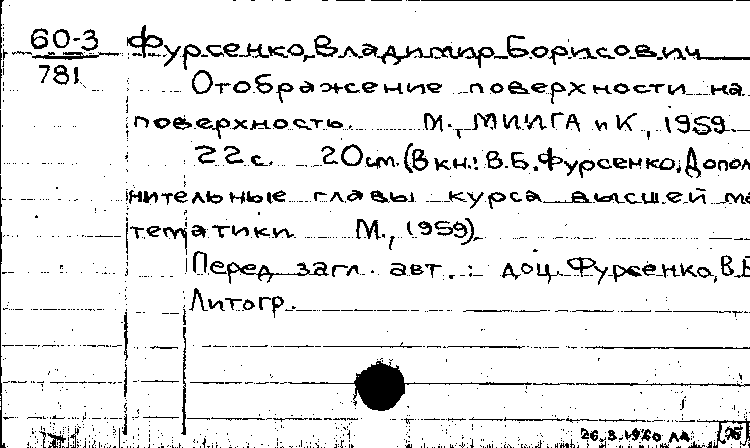 60-3 Фурсенко, Владимир Борисович
781 Отображение поверхности на
поверхность. М., МИИГА и К, 1959
22 с. 20 см. (В кн.: В.Б. Фурсенко. Допол
нительные главы курса высшей ма
тематики М., 1959)
Перед загл. авт.: доц. Фурсенко, В.Б
Литогр.
26.3.1960